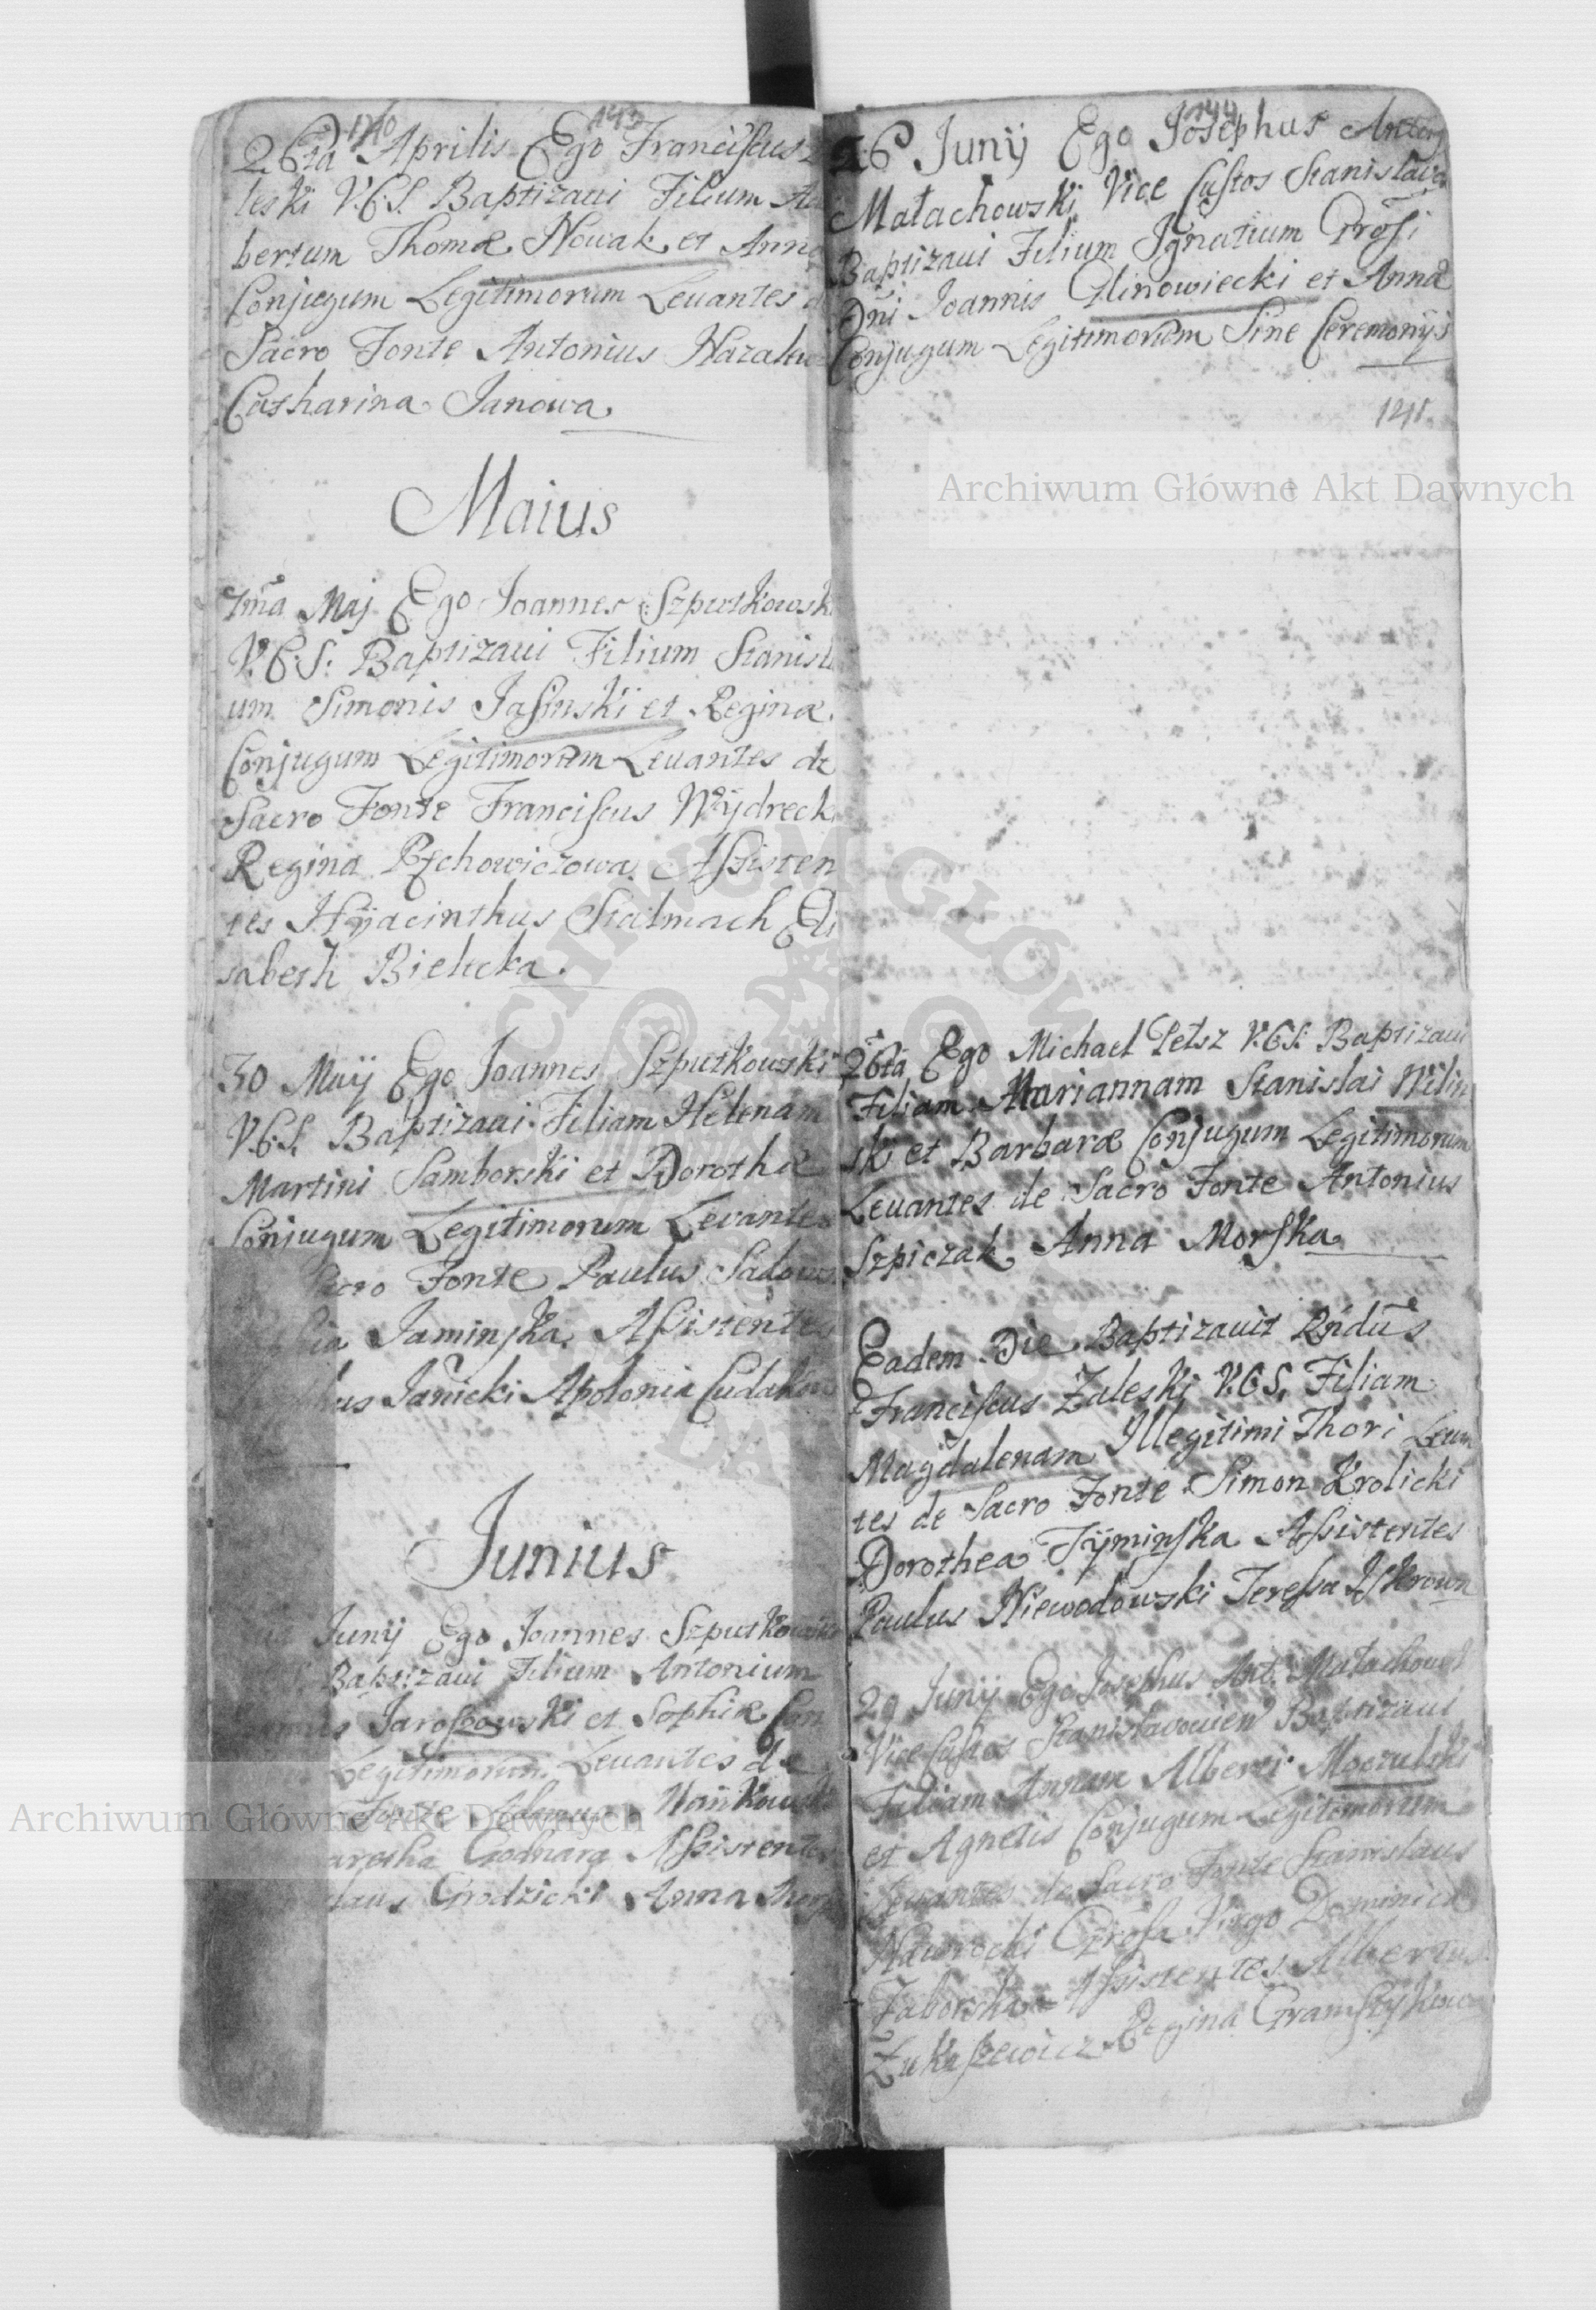 1740
143
26ta Aprilis Ego Franciscus Za
leski V.C.S. Baptizavi Filium Al
bertum Thomæ Nowak et Annæ
Conjugum Legitimorum Levantes de
Sacro Fonte Antonius
Catharina Janowa.
Maius
7ma Maj Ego Joannes Szputkowski
V.C.S: Baptizavi Filium Stanisla
um Simonis Jasinski et Reginæ
Conjugum Legitimorum Levantes de
Sacro Fonte Franciscus Wydreck
Regina Rychowiczowa Assisten
tes Hyacinthus Stalmach Eli
sabeth Bielicka.
30 Maij Ego Joannes Szputkowski
V.C.S. Baptizavi Filiam Helenam
Martini Samborski et Dorothæ
Conjugum Legitimorum Levantes
Fonte Paulus Sadows
Jaminska Assistentes
Janicki Apolonia Cudakow
Junius
Junij Ego Joannes Szputkowski
Baptizavi Filium Antonium
Jaroszowski et Sophiæ Con
Legitimorum Levantes de
Fonte Adamus Wankowski
Assistentes
Grodzicki Anna
144
26 Junij Ego Josephus Antony
Małachowski Vice Custos Stanislavo
Baptizavi Filium Ignatium Grosi
Dni Joannis Glinowiecki et Annæ
Conjugum Legitimorum Sine Ceremonijs
141.
26ta Ego Michael Petsz V.C.S: Baptizavi
Filiam Mariannam Stanislai Wilin
ski et Barbaræ Conjugum Legitimorum
Levantes de Sacro Fonte Antonius
Szpiczak Anna Morska
Eadem Die Baptizavit Rndus
Franciscus Zaleski V.C.S. Filiam
Magdalenam Illegitimi Thori Levan
tes de Sacro Fonte Simon Krolicki
Dorothea Tyminska Assistentes
Paulus Niewodowski Teressa Iskrowa
29 Junij Ego Josephus Ant. Małachowski
Vice Custos Stanislavovien Baptizavi
Filiam Annam Alberti Moczulski
et Agnetis Conjugum Legitimorum
Levantes de Sacro Fonte Stanislaus
Nawrocki Virgo Dominica
Zaborska Assistentes Albertus
Łukaszewicz Regina
Archiwum Główne Akt Dawnych
Archiwum Główne Akt Dawnych
ARCHIWUM GŁÓWNE
AKT DAWNYCH